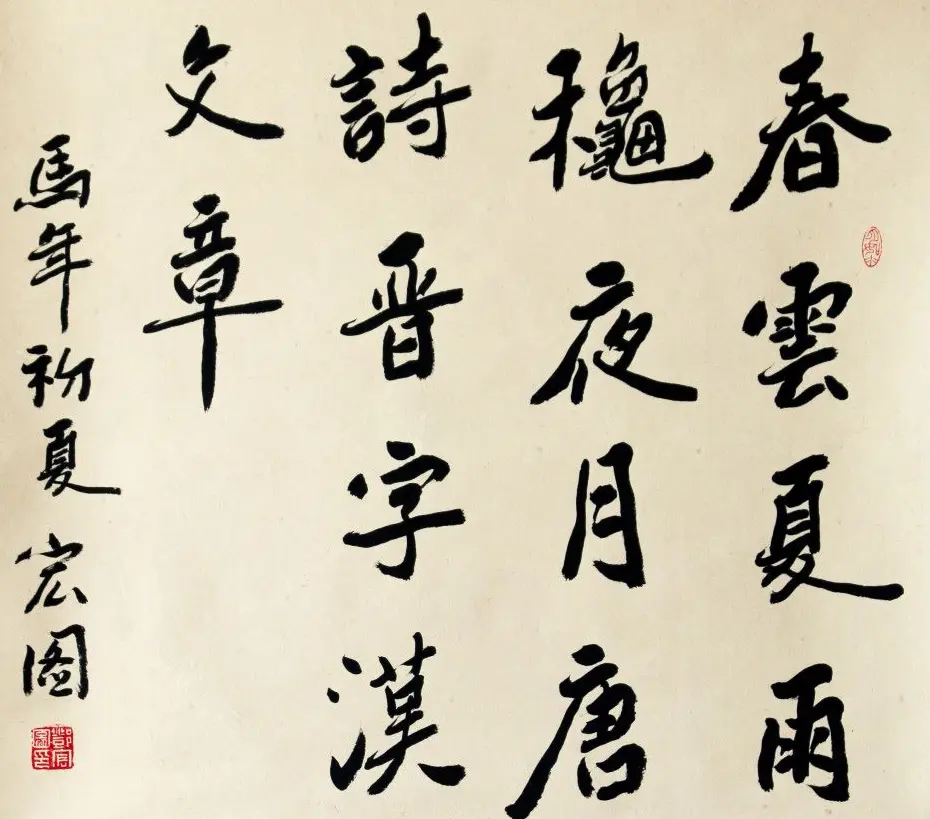 春雲夏雨
龝夜月唐
詩晋字漢
文章
馬年初夏 宏图